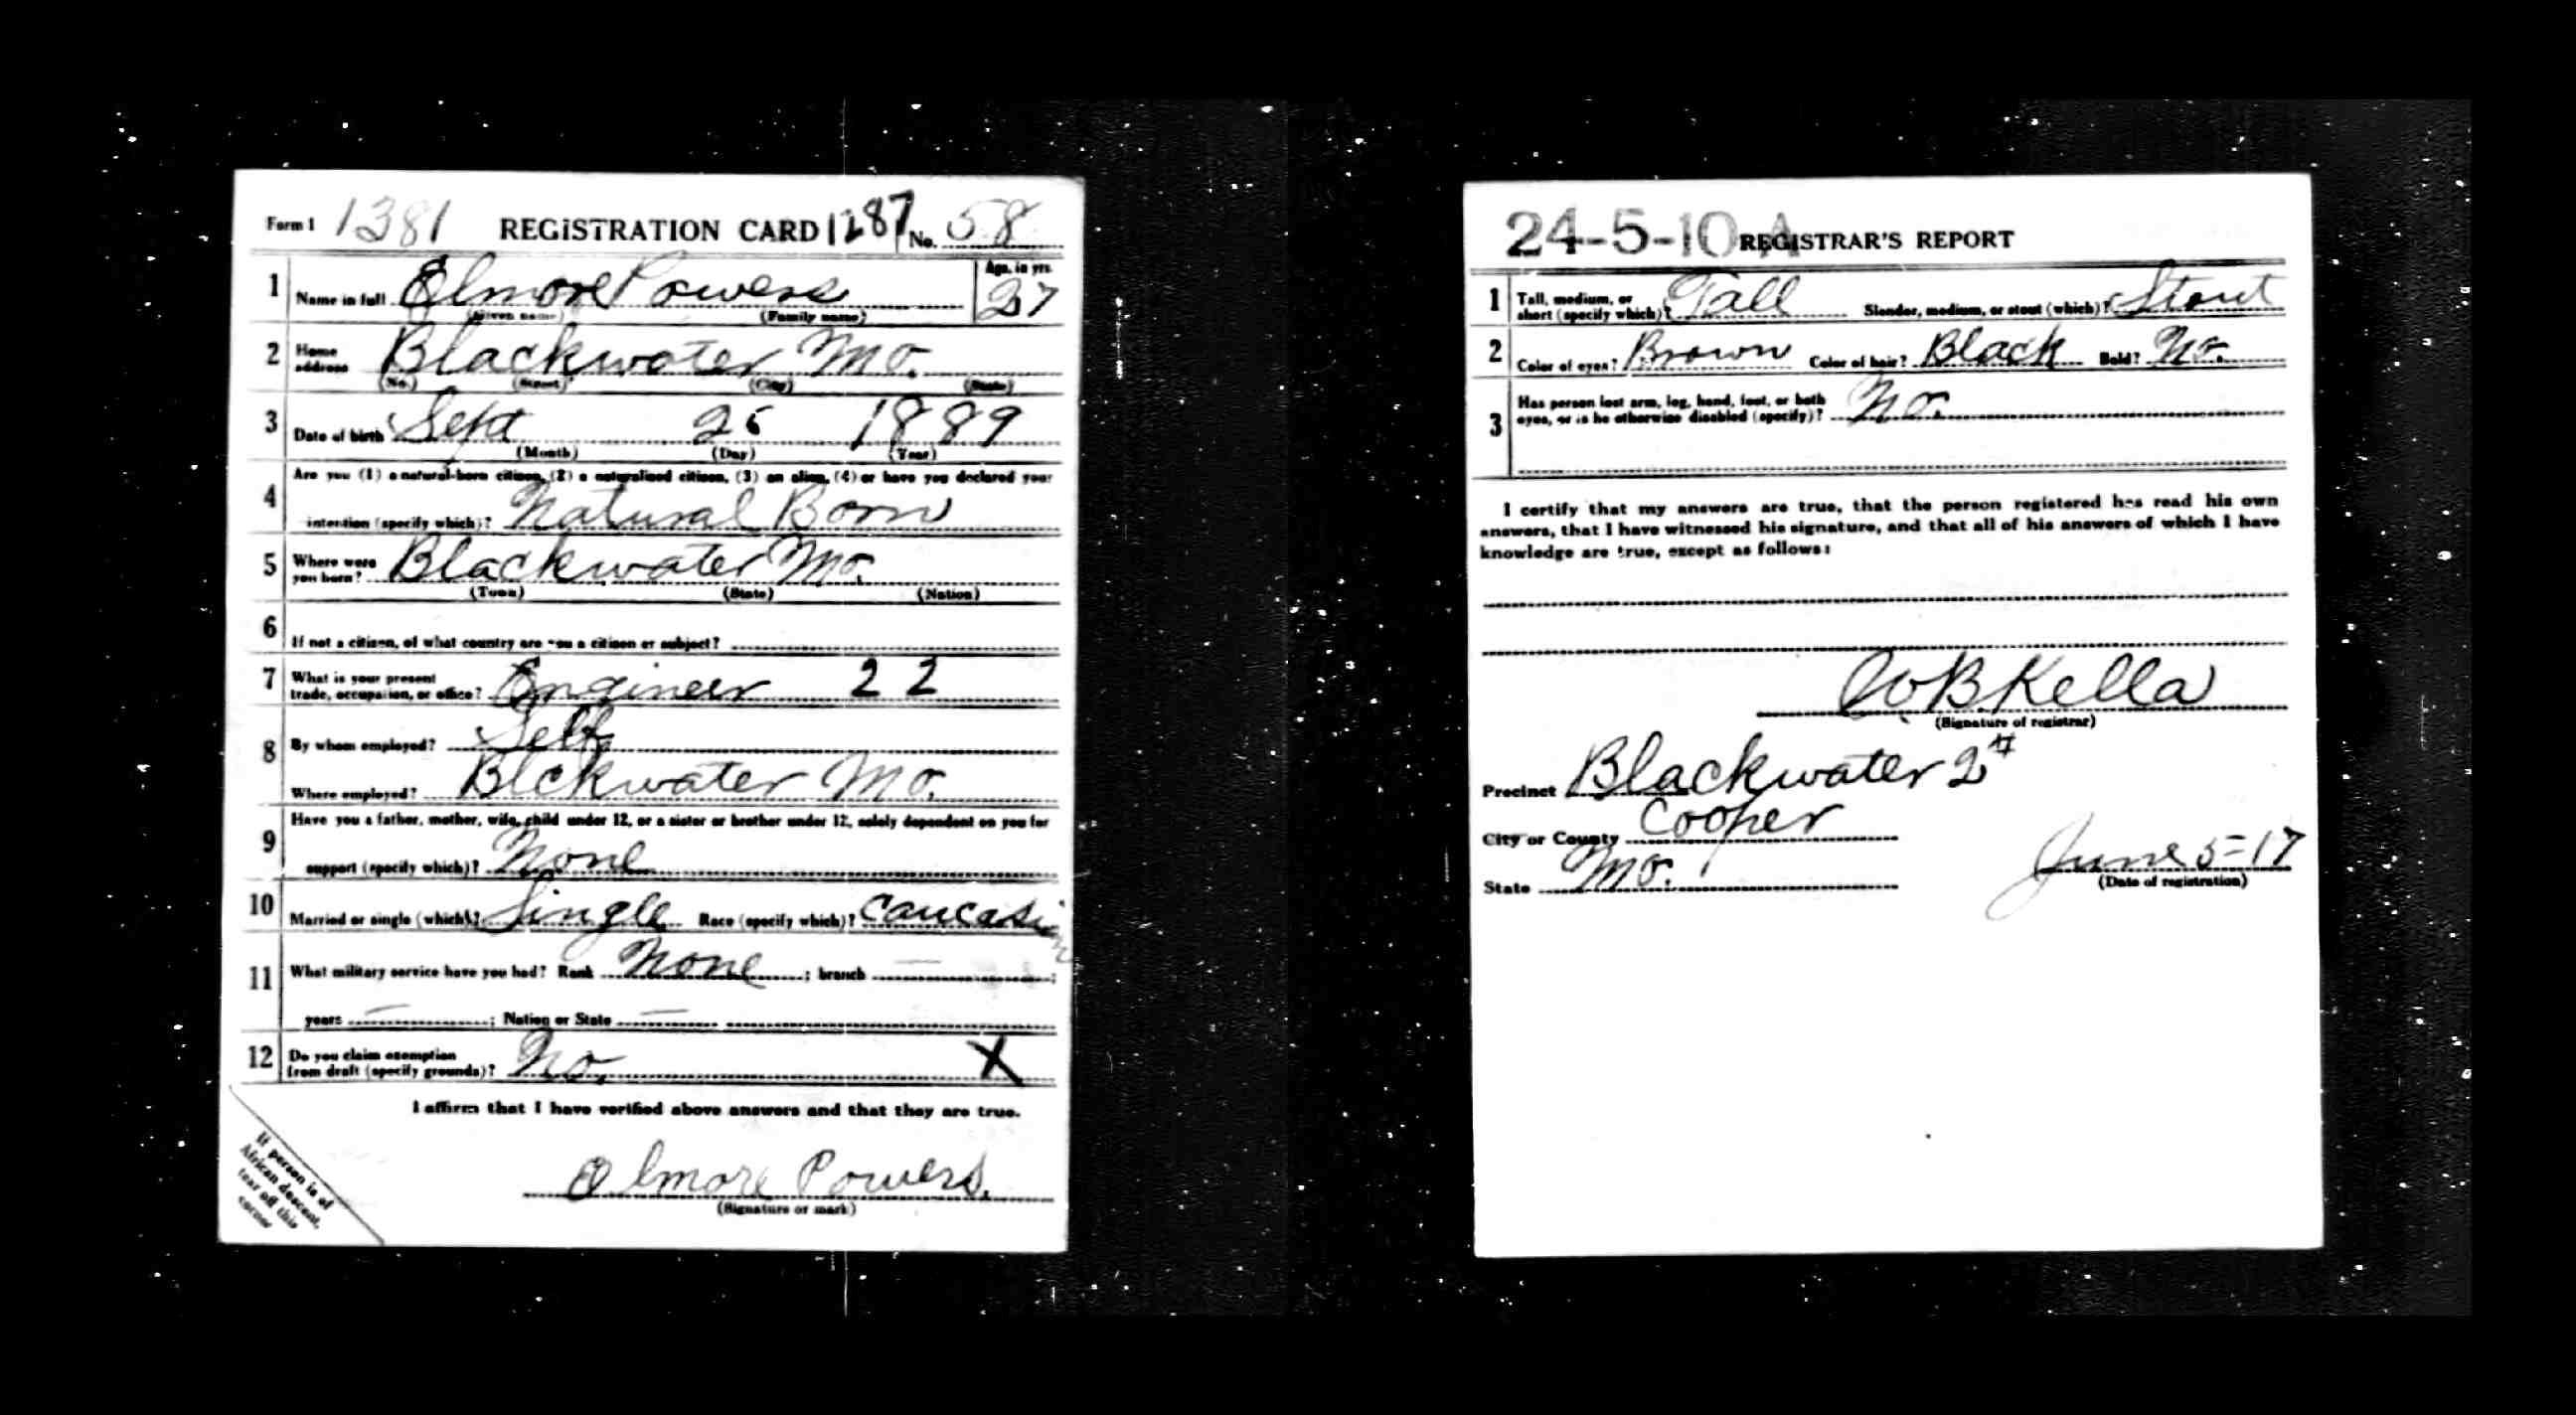 Form 1 1381 REGISTRATION CARD 1287 No. 58
1 Name in full Elmore Powers Age, in yrs. 27
(Given name) (Family name)
2 Home address Blackwater Mo.
(No.) (Street) (City) (State)
3 Date of birth Sept 26 1889
(Month) (Day) (Year)
4 Are you (1) a natural-born citizen, (2) a naturalized citizen, (3) an alien, (4) or have you declared your
intention (specify which)? Natural Born
5 Where were you born? Blackwater Mo.
(Town) (State) (Nation)
6 If not a citizen, of what country are you a citizen or subject?
7 What is your present trade, occupation, or office? Engineer 22
8 By whom employed? Self
Where employed? Blckwater Mo.
9 Have you a father, mother, wife, child under 12, or a sister or brother under 12, solely dependent on you for
support (specify which)? None
10 Married or single (which)? Single Race (specify which)? Caucasian
11 What military service have you had? Rank None ; branch — ;
years — ; Nation or State —
12 Do you claim exemption from draft (specify grounds)? No. X
I affirm that I have verified above answers and that they are true.
Elmore Powers.
(Signature or mark)
If person is of
African descent,
tear off this
corner
24-5-10 A REGISTRAR'S REPORT
1 Tall, medium, or short (specify which)? Tall Slender, medium, or stout (which)? Stout
2 Color of eyes? Brown Color of hair? Black Bald? No.
3 Has person lost arm, leg, hand, foot, or both
eyes, or is he otherwise disabled (specify)? No.
I certify that my answers are true, that the person registered has read his own
answers, that I have witnessed his signature, and that all of his answers of which I have
knowledge are true, except as follows:
WB Kella
(Signature of registrar)
Precinct Blackwater 2#
City or County Cooper
State Mo. June 5-17
(Date of registration)